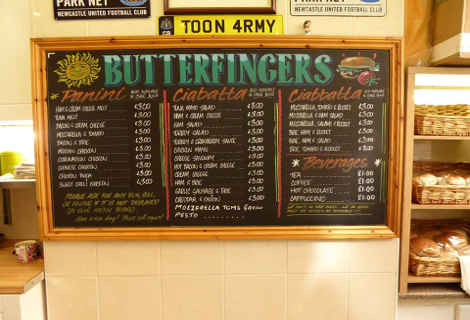 PARK NET
NEWCASTLE UNITED FOOTBALL CLUB
TOON 4RMY
PARK NET
NEWCASTLE UNITED FOOTBALL CLUB
BUTTERFINGERS
Panini
HAM & CREAM CHEESE MELT £3.00
TUNA MELT £3.00
BACON & CREAM CHEESE £3.00
MOZZARELLA & TOMATO £3.00
BACON & BRIE £3.00
MEXICAN CHICKEN £3.00
CORONATION CHICKEN £3.00
CHINESE CHICKEN £3.00
CHICKEN TIKKA £3.00
SWEET CHILLI CHICKEN £3.00
PLEASE ASK FOR ANY BUN, ROLL,
OR FILLING IF IT IS NOT DISPLAYED
ON OUR MENU BOARD.
Have a nice day! Please call again!
Ciabatta
TUNA MAYO SALAD £3.00
HAM & CREAM CHEESE £3.00
HAM SALAD £3.00
TURKEY SALAD £3.00
TURKEY & CRANBERRY SAUCE £3.00
CHICKEN MAYO £3.00
CHEESE SAVOURY £3.00
HOT BACON & CREAM CHEESE £3.00
CREAM CHEESE £3.00
HAM & BRIE £3.00
GARLIC SAUSAGE & BRIE £3.00
CHEDDAR & ONION £3.00
MOZZERELLA TOMS GREEN
PESTO
Ciabatta
MOZZARELLA, TOMATO & ROCKET £3.00
MOZZARELLA & HAM £3.00
MOZZARELLA, SALAMI & ROCKET £3.00
BRIE, HAM & ROCKET £3.00
BRIE, TOMATO & ROCKET £3.00
Beverages
TEA £1.00
COFFEE £1.00
HOT CHOCOLATE £1.00
CAPPUCCINO £1.00